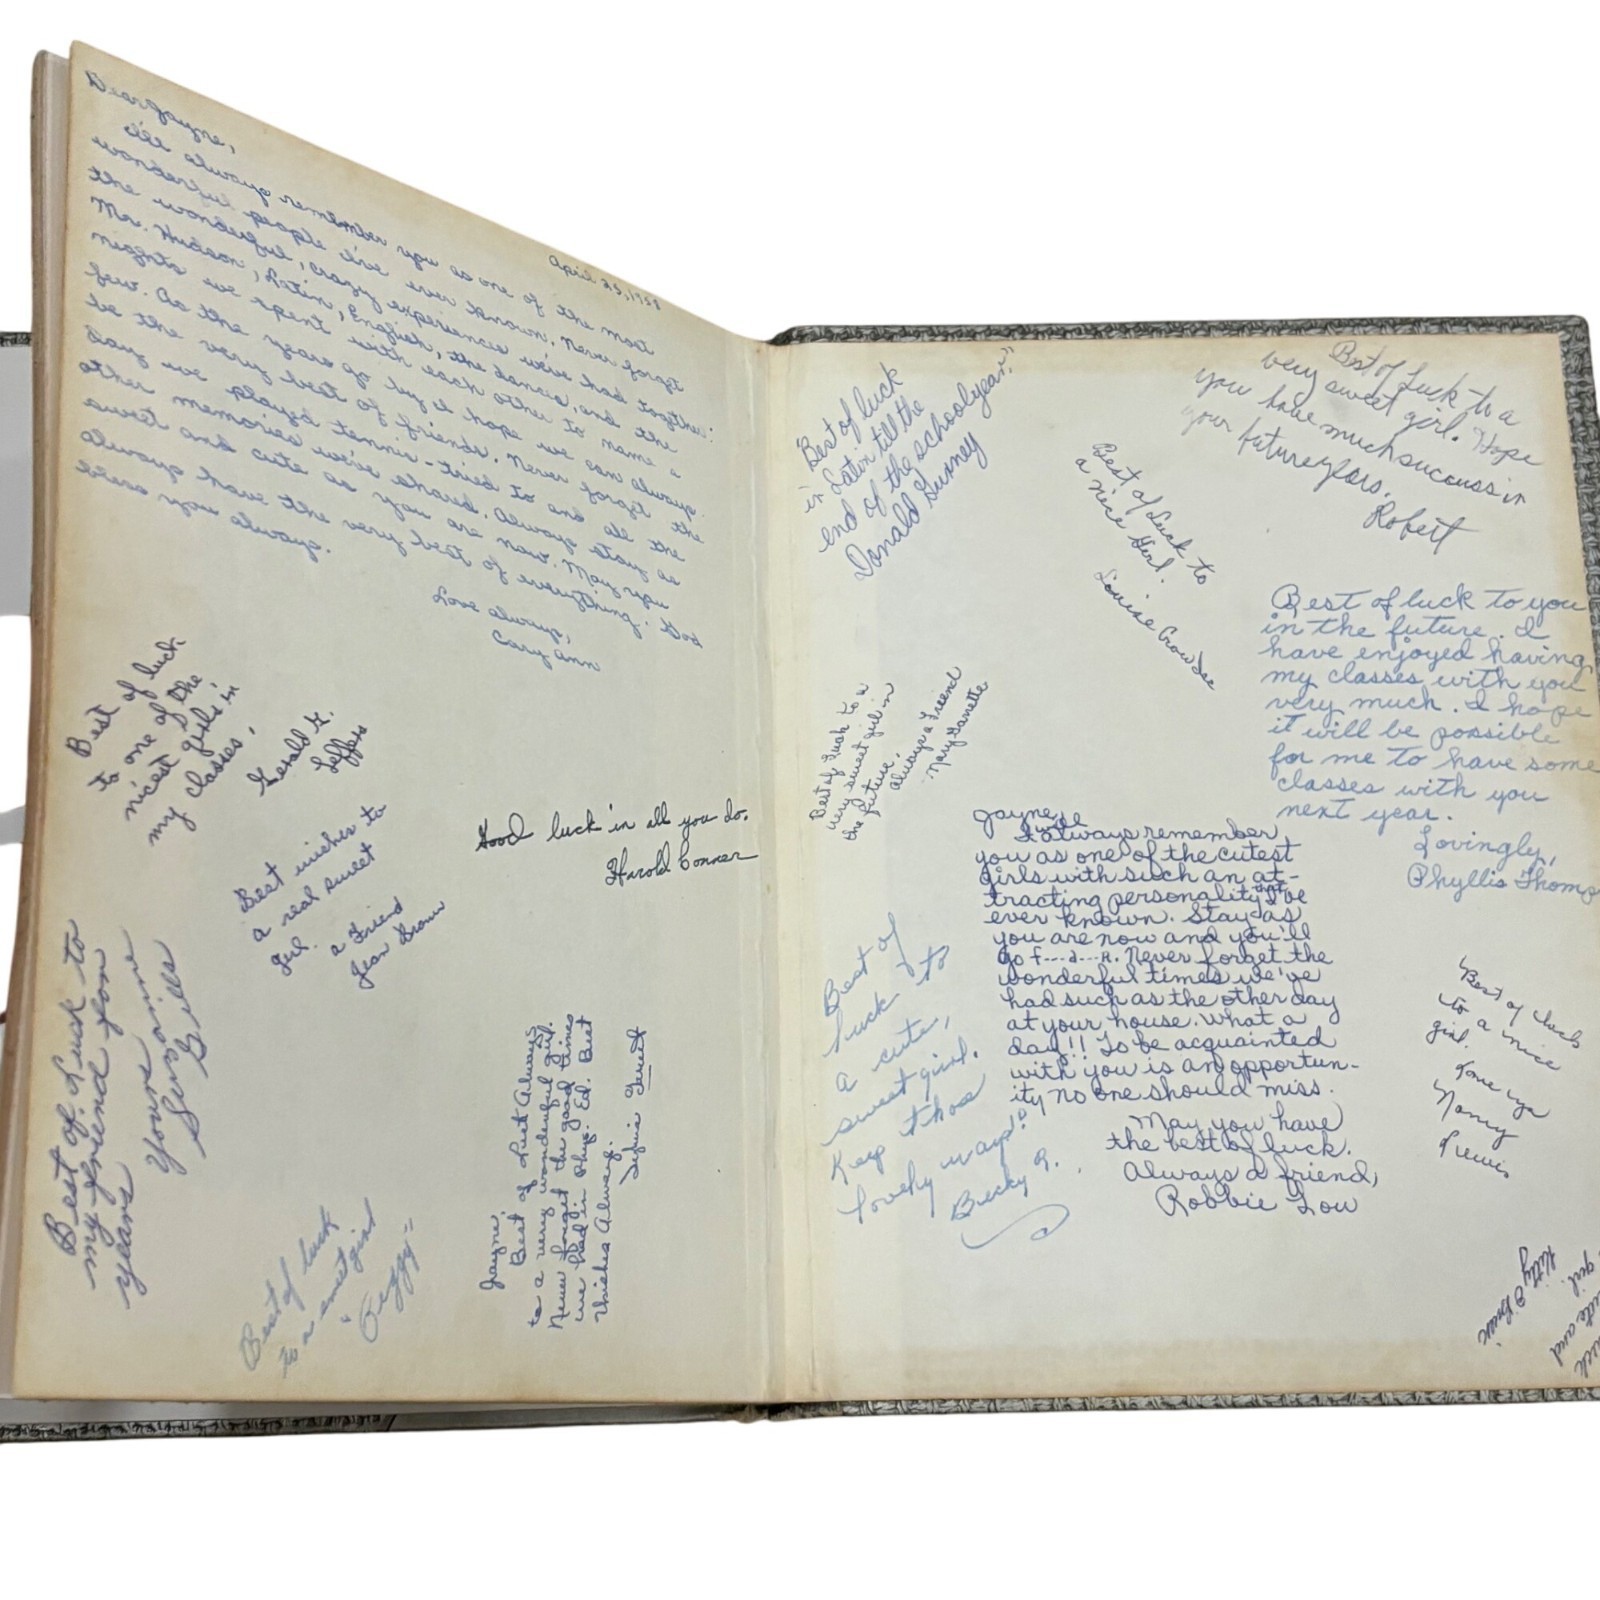 Dear Jayne,
April 23, 1958
I'll always remember you as one of the most
wonderful people I've ever known. Never forget
the wonderful, crazy experiences we've had together:
Mr. Hudson, Latin, English, the dances, and the
nights we spent with each other to name a
few. As the years go by I hope we can always
be the very best of friends. Never forget the
day we played tennis - tried to and all the
other memories we've shared. Always stay as
sweet and cute as you are now. May you
always have the very best of everything. God
bless you always.
Love always,
Cary Ann
Best of luck
to one of the
nicest girls in
my classes,
Gerald G.
Jeffers
Best wishes to
a real sweet
girl.
a Friend
Jean Brown
Good luck in all you do.
Harold Conner
Best of Luck to
my friend from
years
Yours
Gills
Best of luck
to a sweet girl
"Peggy"
Jayne,
Best of Luck Always
to a very wonderful girl.
Never forget the good times
we had in Phys. Ed. Best
Wishes Always.
"Best of luck
in Latin till the
end of the school year."
Donald Gurney
Best of Luck to a
very sweet girl. Hope
you have much success in
your future years.
Robert
Best of Luck to
a nice Girl.
Louise Crowder
Best of luck to you
in the future. I
have enjoyed having
my classes with you
very much. I hope
it will be possible
for me to have some
classes with you
next year.
Lovingly,
Phyllis Thomp
Best of luck to a
very sweet girl in
the future.
always a Friend
Mary Nanette
Jayne,
I'll always remember
you as one of the cutest
girls with such an at-
tracting personality that I've
ever known. Stay as
you are now and you'll
go f---a---r. Never forget the
wonderful times we've
had such as the other day
at your house. What a
day!! To be acquainted
with you is an opportun-
ity no one should miss.
May you have
the best of luck.
Always a friend,
Robbie Lou
Best of
luck to
a cute,
sweet girl.
Keep those
lovely ways!!
Becky R.
Best of luck
to a nice
girl.
Love ya
Nancy
luck
cute and
girl.
Kitty O'Brien